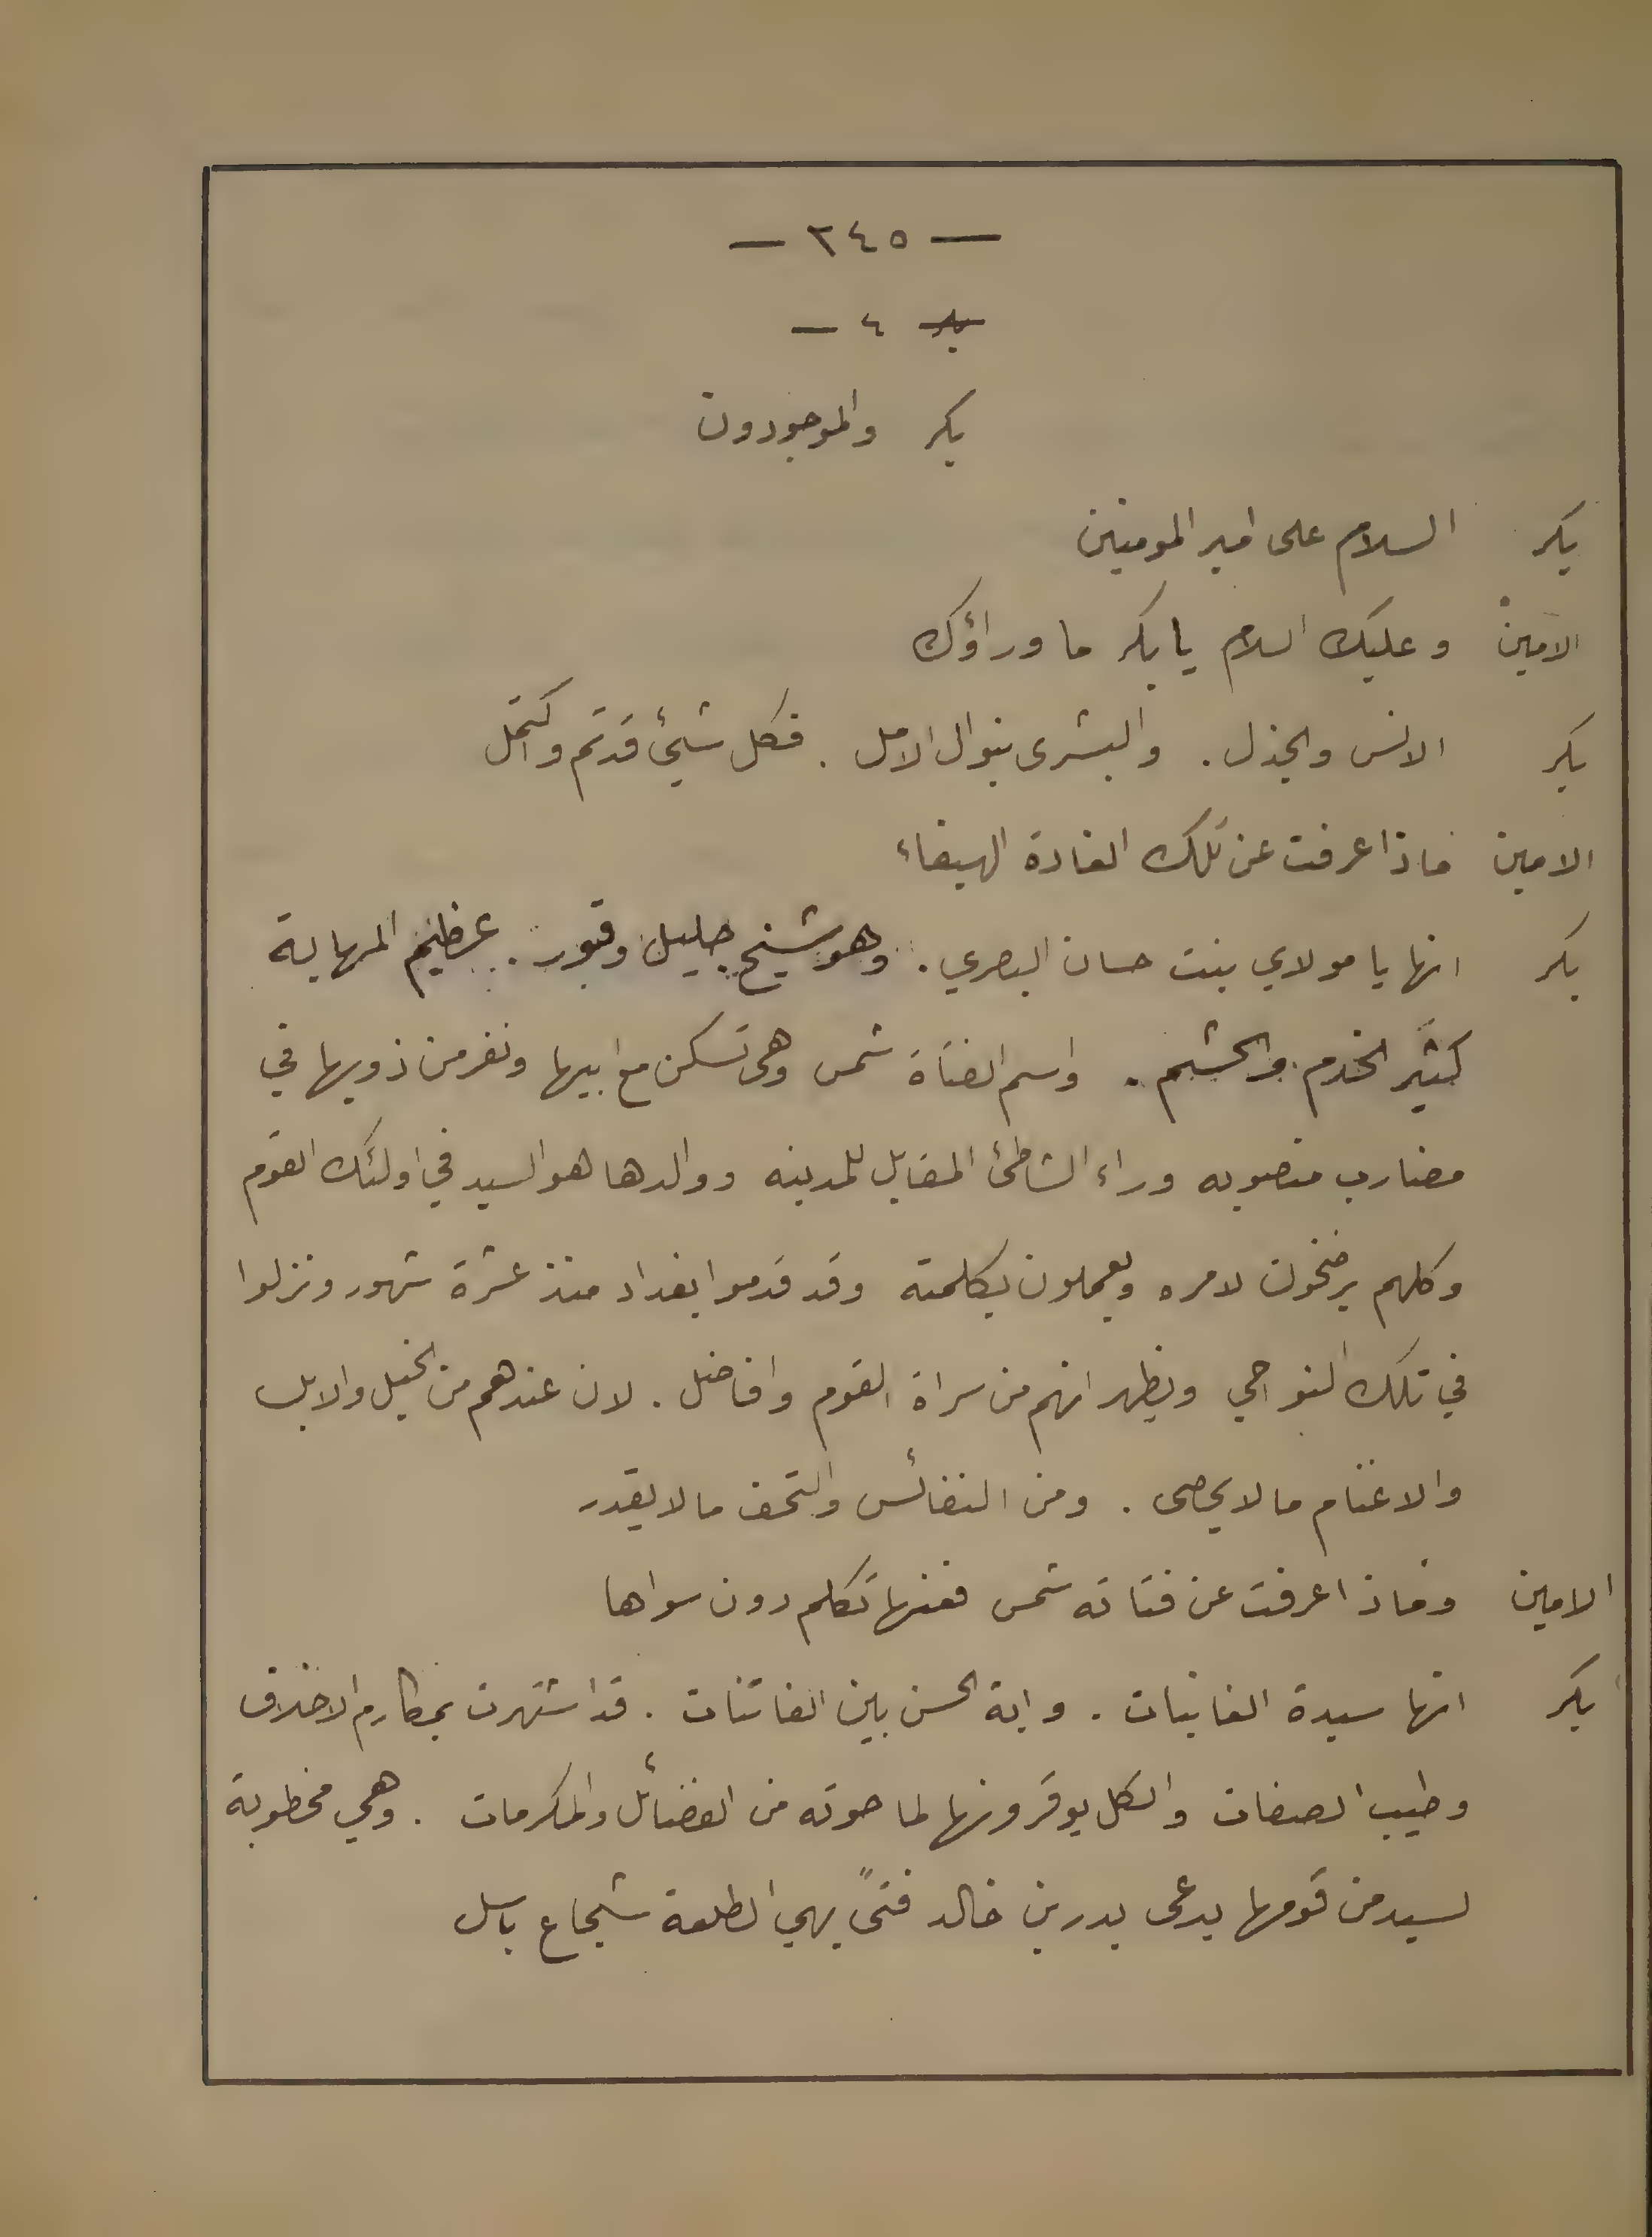 — ٣٤٥ —
— ٤ —
بكر والموجودون
بكر السلام على امير المومنين
الامين وعليك السلام يا بكر ما وراؤك
بكر الانس والجذل . والبشرى بنوال الامل . فكل شيئ قد تم واكتمل
الامين فماذا عرفت عن تلك الغادة الهيفاء
بكر انها يا مولاي بنت حسان البصري . وهو شيخ جليل وقور . عظيم المهابة
كثير الخدم والحشم . واسم الفتاة شمس وهي تسكن مع ابيها ونفر من ذويها في
مضارب منصوبه وراء الشاطئ المقابل للمدينه ووالدها هو السيد في اولئك القوم
وكلهم يرضخون لامره ويعملون بكلمته وقد قدموا بغداد منذ عشرة شهور ونزلوا
في تلك النواحي ويظهر انهم من سراة القوم وافاضل . لان عندهم من الخيل والابل
والاغنام ما لا يحصى . ومن النفائس والتحف ما لا يقدر
الامين وماذا عرفت عن فتاته شمس فعنها تكلم دون سواها
بكر انها سيدة الغانيات . واية الحسن بين الفاتنات . قد اشتهرت بمكارم الاخلاق
وطيب الصفات والكل يوقرونها لما حوته من الفضائل والمكرمات . وهي مخطوبة
لسيد من قومها يدعى بدر بن خالد فتىً بهي الطلعة شجاع باسل